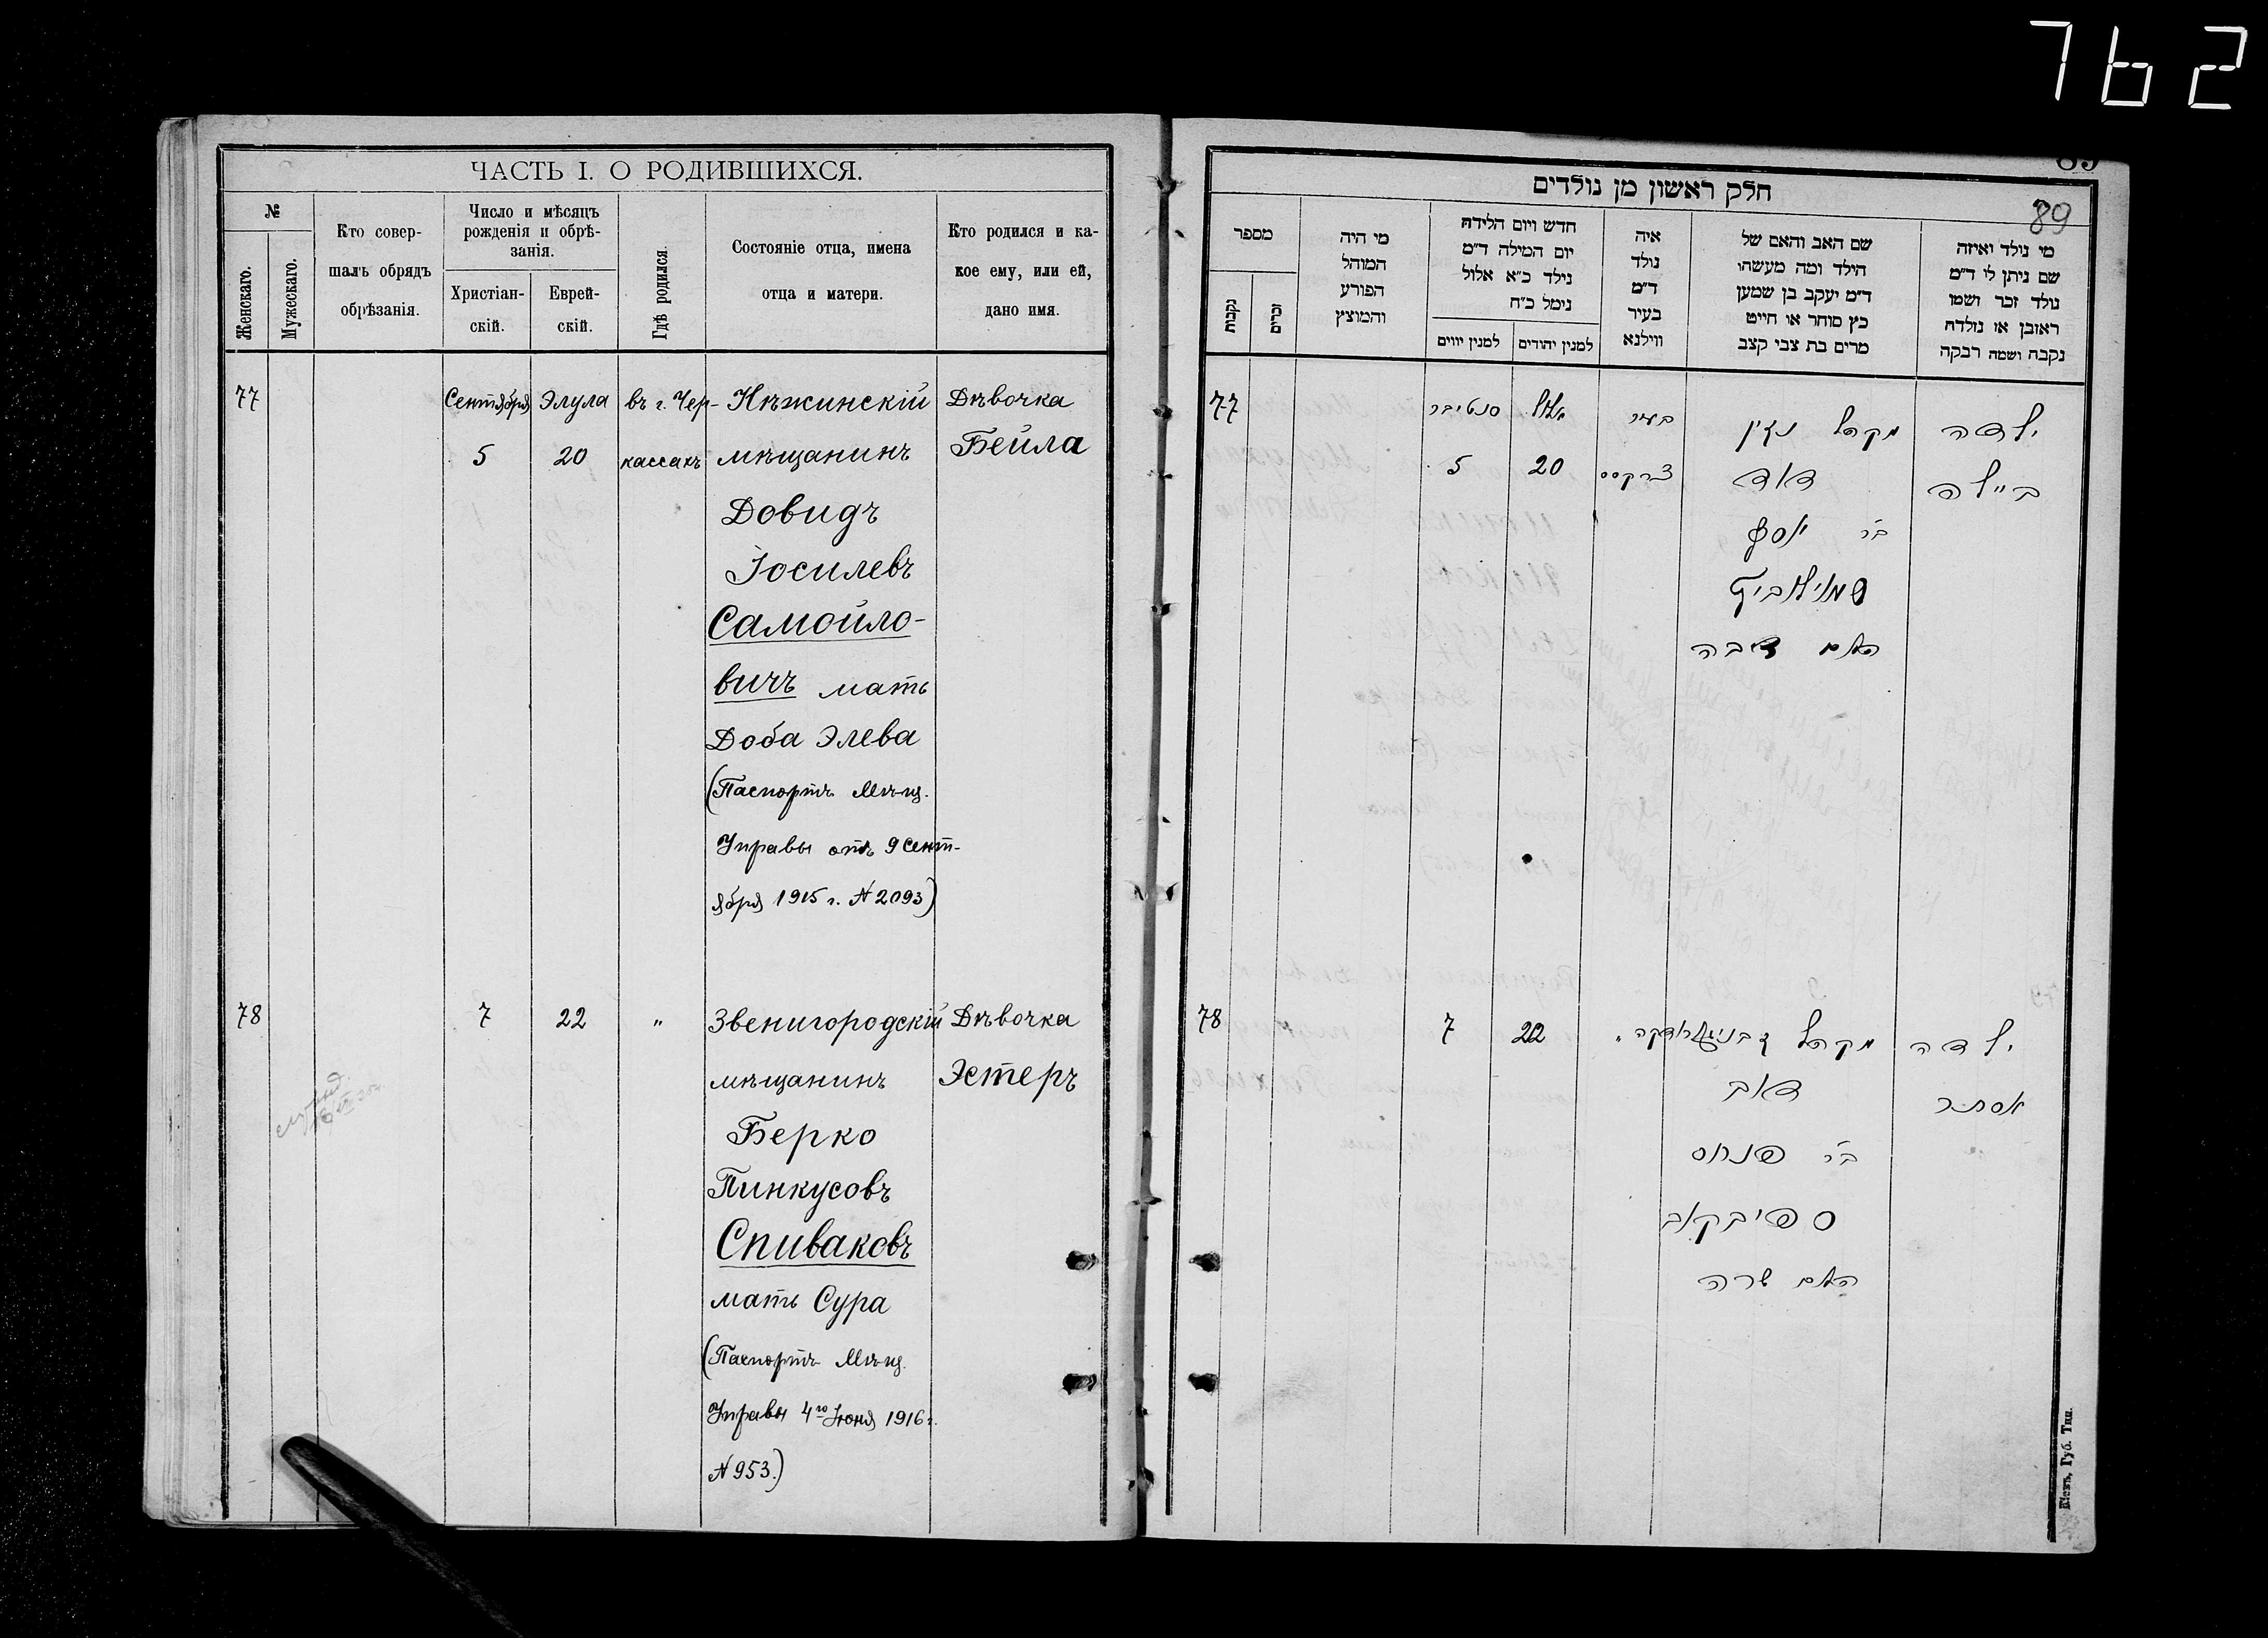 762
ЧАСТЬ I. О РОДИВШИХСЯ.
№
Женскаго.
Мужескаго.
Кто совер-
шалъ обрядъ
обрѣзанія.
Число и мѣсяцъ
рожденія и обрѣ-
занія.
Христіан-
скій.
Еврей-
скій.
Гдѣ родился.
Состояніе отца, имена
отца и матери.
Кто родился и ка-
кое ему, или ей,
дано имя.
77
Сентября
5
Элула
20
въ г. Чер-
кассахъ
Нѣжинскій
мѣщанинъ
Довидъ
Іосилевъ
Самойло-
вичъ мать
Доба Элева
(Паспортъ Мѣщ.
Управы отъ 9 Сент-
ября 1915 г. № 2093)
Дѣвочка
Бейла
78
7
22
"
Звенигородскій
мѣщанинъ
Берко
Пинкусовъ
Спиваковъ
мать Сура
(Паспортъ Мѣщ.
Управы 4го Іюня 1916 г.
№ 953.)
Дѣвочка
Эстеръ
89
חלק ראשון מן נולדים
מספר
נקבות
זכרים
מי היה
המוהל
הפורע
והמוצץ
חדש ויום הלידה
יום המילה ד״מ
נילד כ״א אלול
נימל כ״ח
למנין יווים
למנין יהודים
איה
נולד
ד״מ
בעיר
ווילנא
שם האב והאם של
הילד ומה מעשהו
ד״מ יעקב בן שמען
כץ סוחר או חייט
מרים בת צבי קצב
מי נולד ואיזה
שם ניתן לי ד״מ
נולד זכר ושמו
ראובן או נולדה
נקבה ושמה רבקה
77
סנטיבר
5
אלול
20
בעיר
צרקסס
מקהל נזין
דוד
בר יוסף
סמוילאוויץ
האם דובה
ילדה
ביילה
78
7
22
"
מקהל זבניגאראדקה
דוב
בר פנחס
ספיבקאב
האם שרה
ילדה
אסתר
Кіевъ, Губ. Тип.